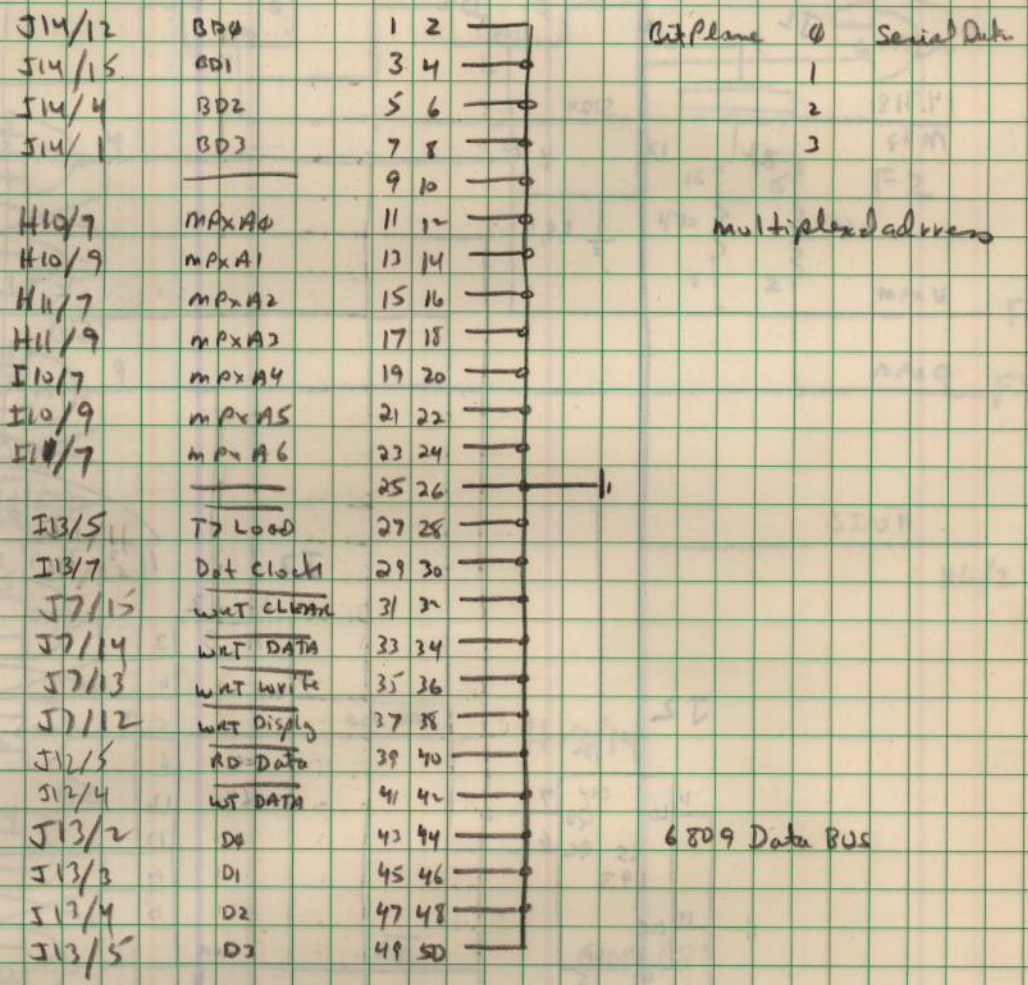 J14/12 BD0 1 2 Bit Plane 0 Serial Data
J14/15 BD1 3 4 1
J14/4 BD2 5 6 2
J14/1 BD3 7 8 3
9 10
H10/7 MPXA0 11 12 multiplexd adrress
H10/9 MPXA1 13 14
H11/7 MPXA2 15 16
H11/9 MPXA3 17 18
I10/7 MPXA4 19 20
I10/9 MPXA5 21 22
I11/7 MPXA6 23 24
25 26
I13/5 T7 LOAD 27 28
I13/7 Dot Clock 29 30
J7/15 WRT CLEAR 31 32
J7/14 WRT DATA 33 34
J7/13 WRT write 35 36
J7/12 WRT Disply 37 38
J12/5 RD Data 39 40
J12/4 WT DATA 41 42
J13/2 D0 43 44 6809 Data BUS
J13/3 D1 45 46
J13/4 D2 47 48
J13/5 D3 49 50